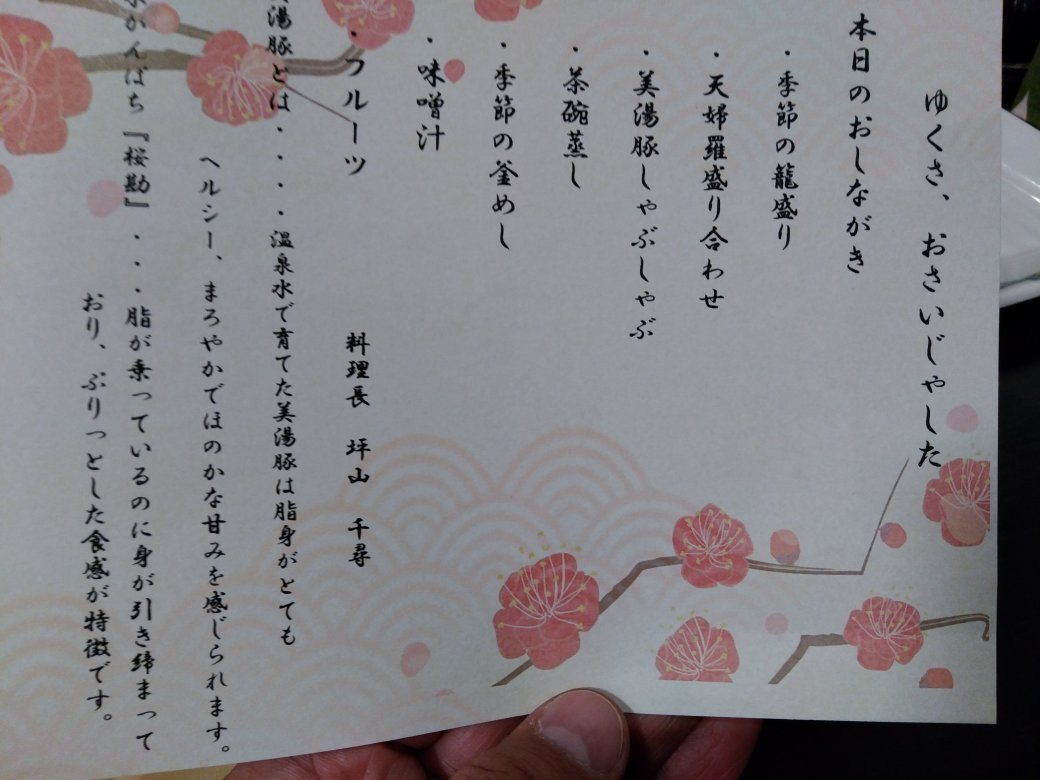 ゆくさ、おさいじゃした
本日のおしながき
・季節の籠盛り
・天婦羅盛り合わせ
・美湯豚しゃぶしゃぶ
・茶碗蒸し
・季節の釜めし
・味噌汁
・フルーツ
料理長 坪山 千尋
湯豚とは・・・温泉水で育てた美湯豚は脂身がとても
ヘルシー、まろやかでほのかな甘みを感じられます。
かんぱち『桜勘』・・・脂が乗っているのに身が引き締まって
おり、ぷりっとした食感が特徴です。